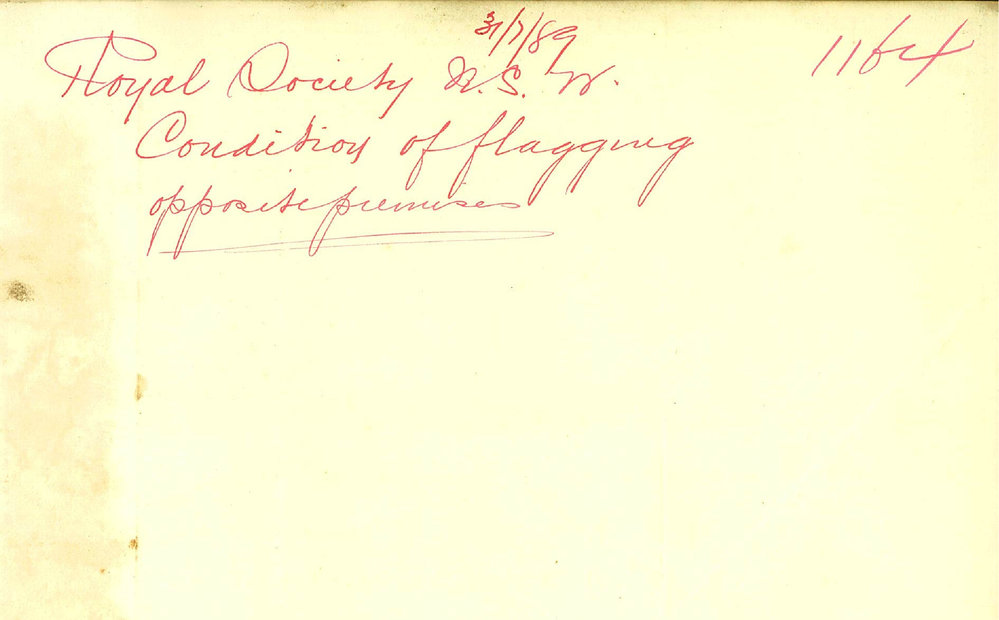 31/7/89
Royal Society N.S.W. 1164
Condition of flagging
opposite premises